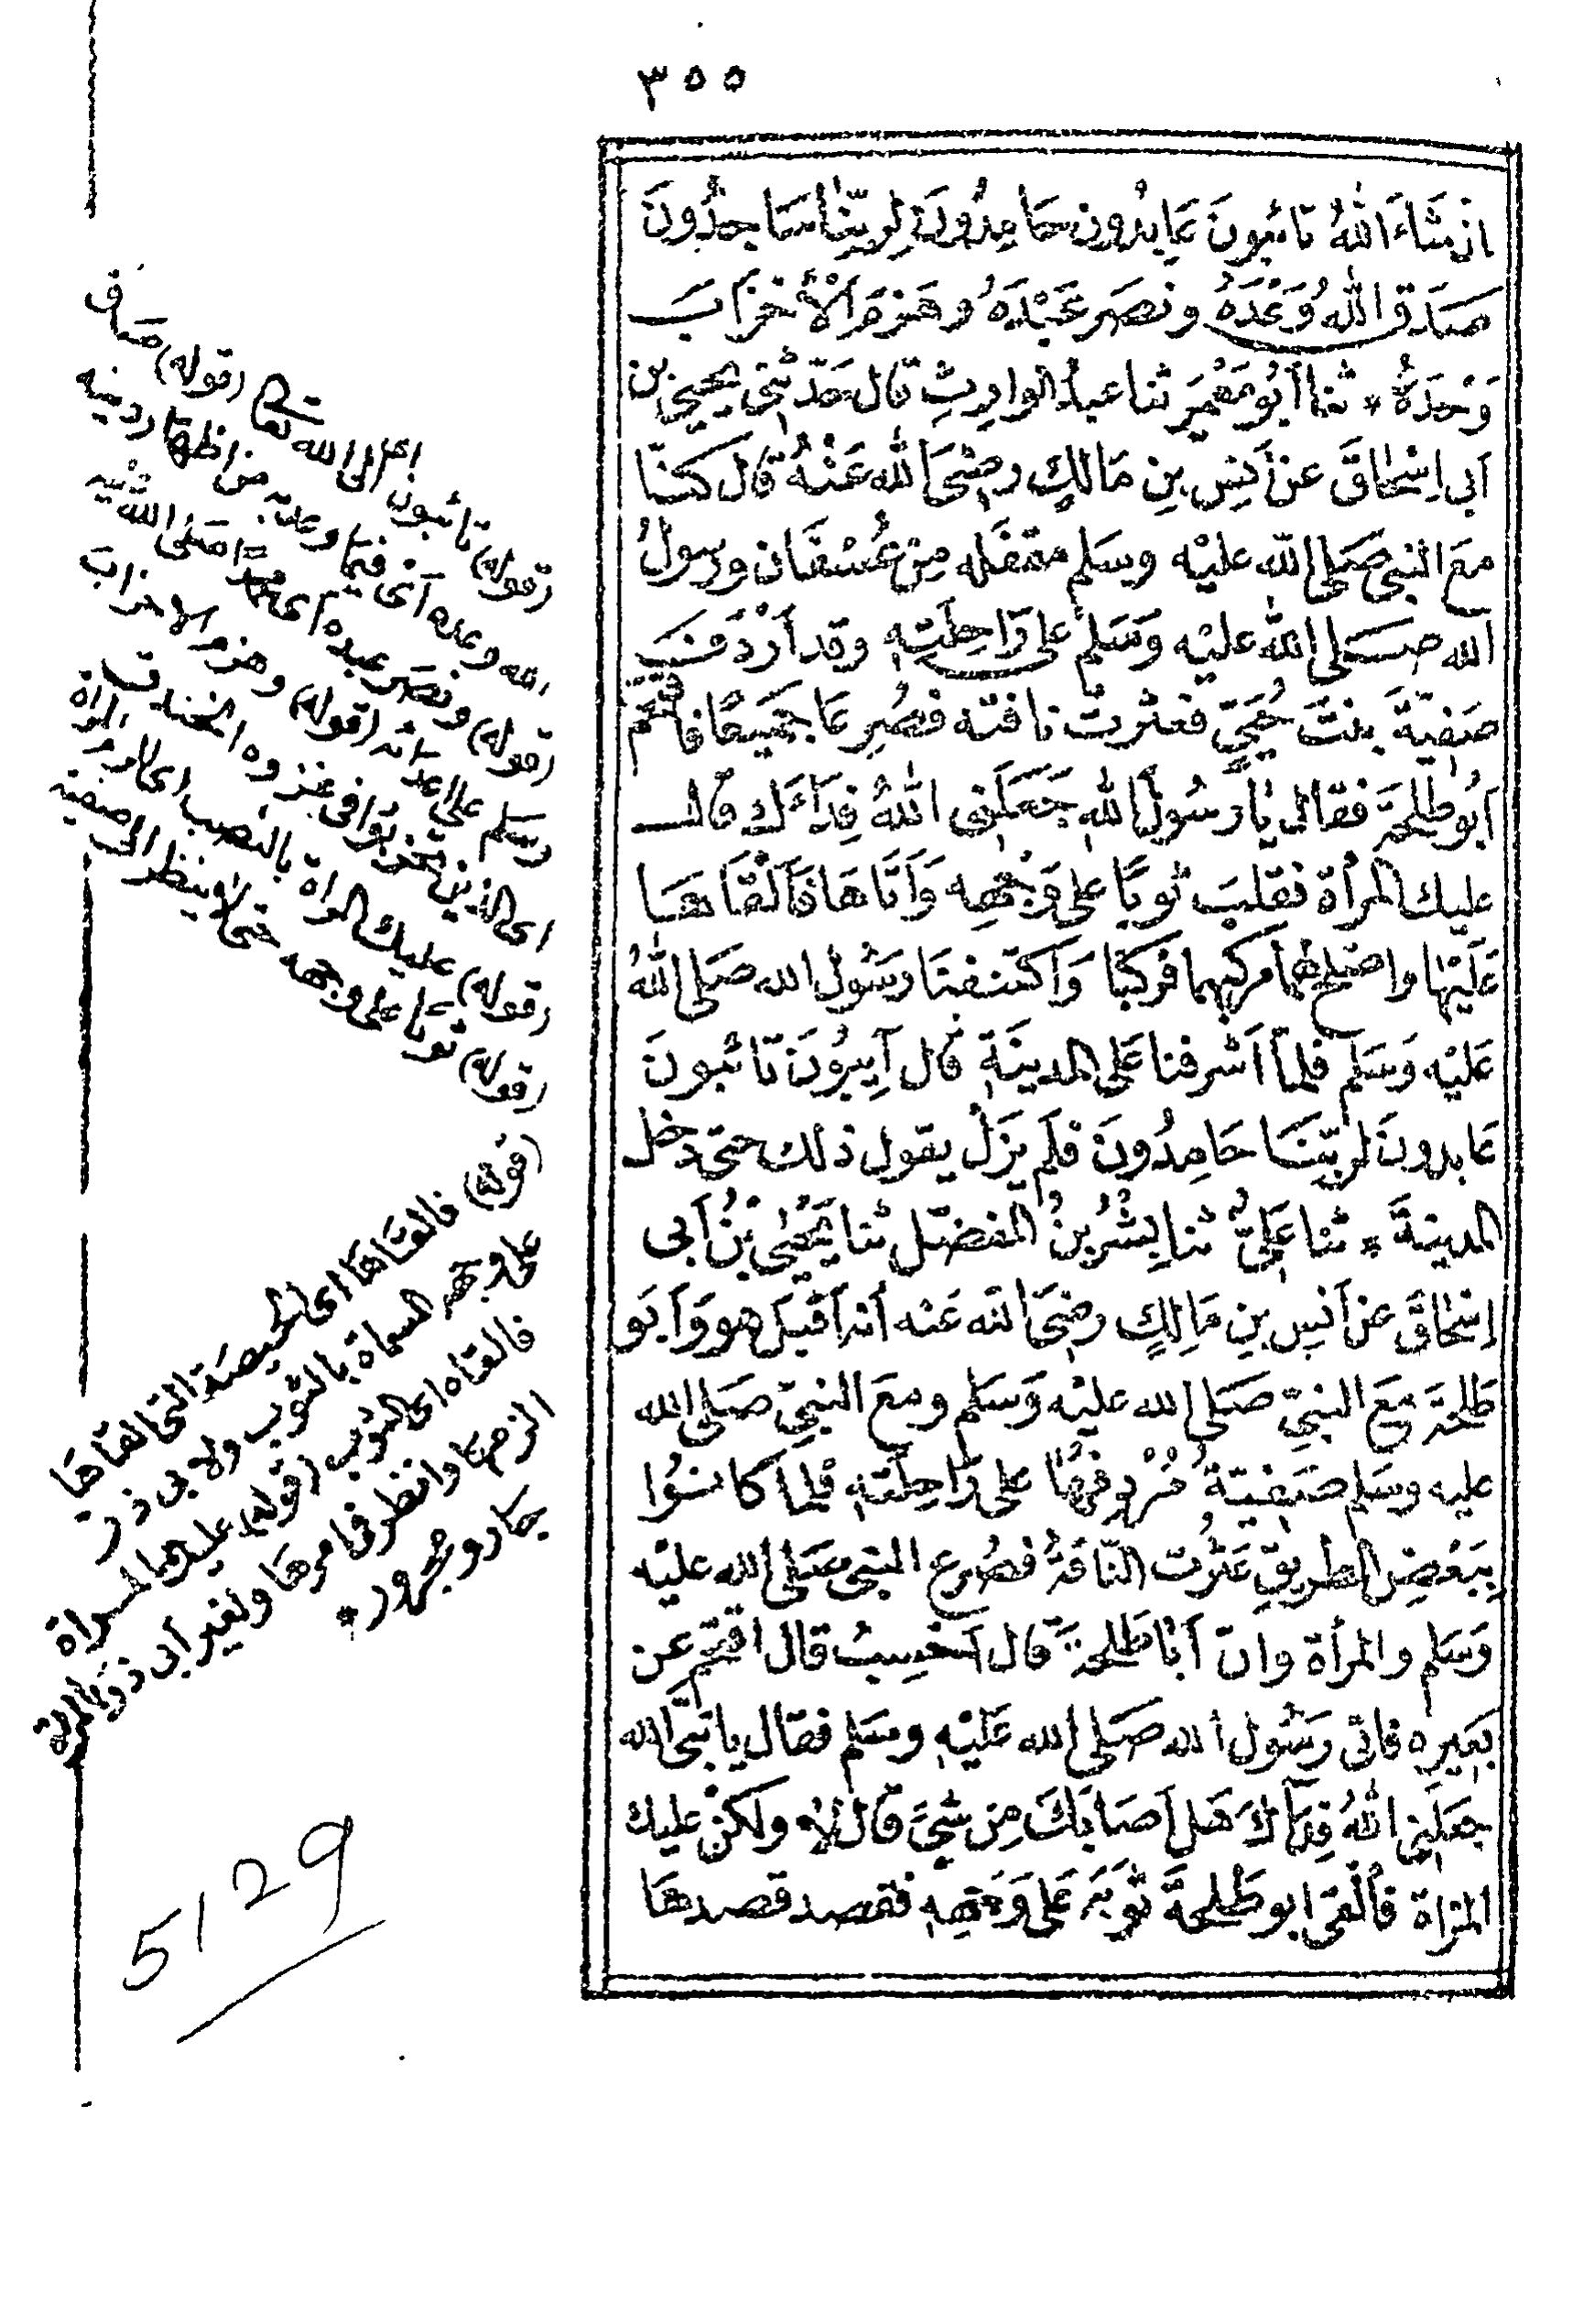 ٣٥٥
ان شَاءَ اللهُ تائبونَ عَابِدُون حَامِدُونَ لِرَبِّنَا سَاجِدُونَ
صَدَقَ اللهُ وَعْدَهُ ونصَر عَبْدَهُ وهَزمَ اَلْأَحْزَابَ
وَحْدَهُ * ثنا أَبُو مَعْمَرَ ثنا عبدُ الوارِثِ قال حَدّثنِى يحيى بن
اَبى اِسْحاقَ عن أَنسِ بنِ مَالكٍ رضِىَ اللهُ عَنْهُ قَالَ كنّا
مَعَ النبىِّ صَلى الله عليْه وسَلم مقفَله مِنْ عُسْفَان ورسولُ
الله صَلى اللهُ عليْه وَسَلم على رَاحِلَتِهِ وقد أَرْدَفَ
صَفيّةَ بنتَ حُيَىٍّ فعثرت ناقته فصُرِعَا جَميعًا فاقتحم
اَبُو طلحَة فقال يَا رَسُولَ اللهِ جَعَلَنِى اللهُ فِدَاءَكَ قال
عليك المرأة فقلبَ ثوبًا على وَجْهِه وَأَتَاهَا فَأَلْقَاهَا
عَلَيْهَا واصْلح لهُما مركبهما فركبَا وَاكتنفنَا رَسُول الله صَلى اللهُ
عَلَيْه وَسَلم فلمّا اَشرفنا عَلى المدينَةِ قال آيِبُونَ تَائبونَ
عَابدونَ لربّنَا حَامِدُونَ فلَم يَزَلْ يقول ذلك حتى دخل
المدينةَ * ثنا عَلِىٌّ ثنا بِشْرُ بنُ المفضّل ثنا يَحْيى بْنُ اَبى
اِسْحاقَ عن أَنسِ بنِ مَالِكٍ رضِىَ الله عَنْه أنه أَقبَلَ هو وَأَبَو
طَلحَة مَعَ النبىِّ صَلى الله عليْه وَسَلم ومعَ النبىِّ صَلى الله
عليه وسَلم صَفيّةُ مُرْدِفهَا على رَاحِلَتهِ فلما كانُوا
بِبَعْضِ الطريقِ عَثرت النّاقَةُ فصُرِع النبى صَلى الله عليْه
وَسَلم والمرأة وانّ أَبَا طَلحَة قال أَحْسِبُ قال اقتحَم عن
بَعِيرِه فاتى رَسُول الله صَلى الله عَلَيْهِ وسَلم فقال يا نبىَّ الله
جعَلَنِى اللهُ فِدَاكَ هَل اَصَابَكَ مِن شَىْءٍ قَال لا ولكنْ عليك
المرْأة فأَلْقَى ابو طَلحَةَ ثَوبَه عَلَى وَجْهِهِ فقصد قصدهَا
(قوله) تائبون اى الى الله تعالى (قوله) صَدق
الله وعده اى فيما وعد به من اظهار دينه
(قوله) ونصَر عبده اى محمدا صَلى الله عليه
وسَلم على اعدائه (قوله) وهزم الاحزاب
اى الذين تحزبوا فى غزوه الخندق
(قوله) عليك المراة بالنصب اى الزم المراة
(قوله) ثوبا على وجهه حتى لا ينظر الى صَفية
(قوله) فالقاهَا اى الخميصَة التى القاهَا
على وجهه المسماة بالثوب ولابى ذر
فالقاه اى الثوب (قوله) عليك المراة
الزمهَا وانظر فى امرهَا ولغير ابى ذر بالمراة
بجَار ومجرور *
5129